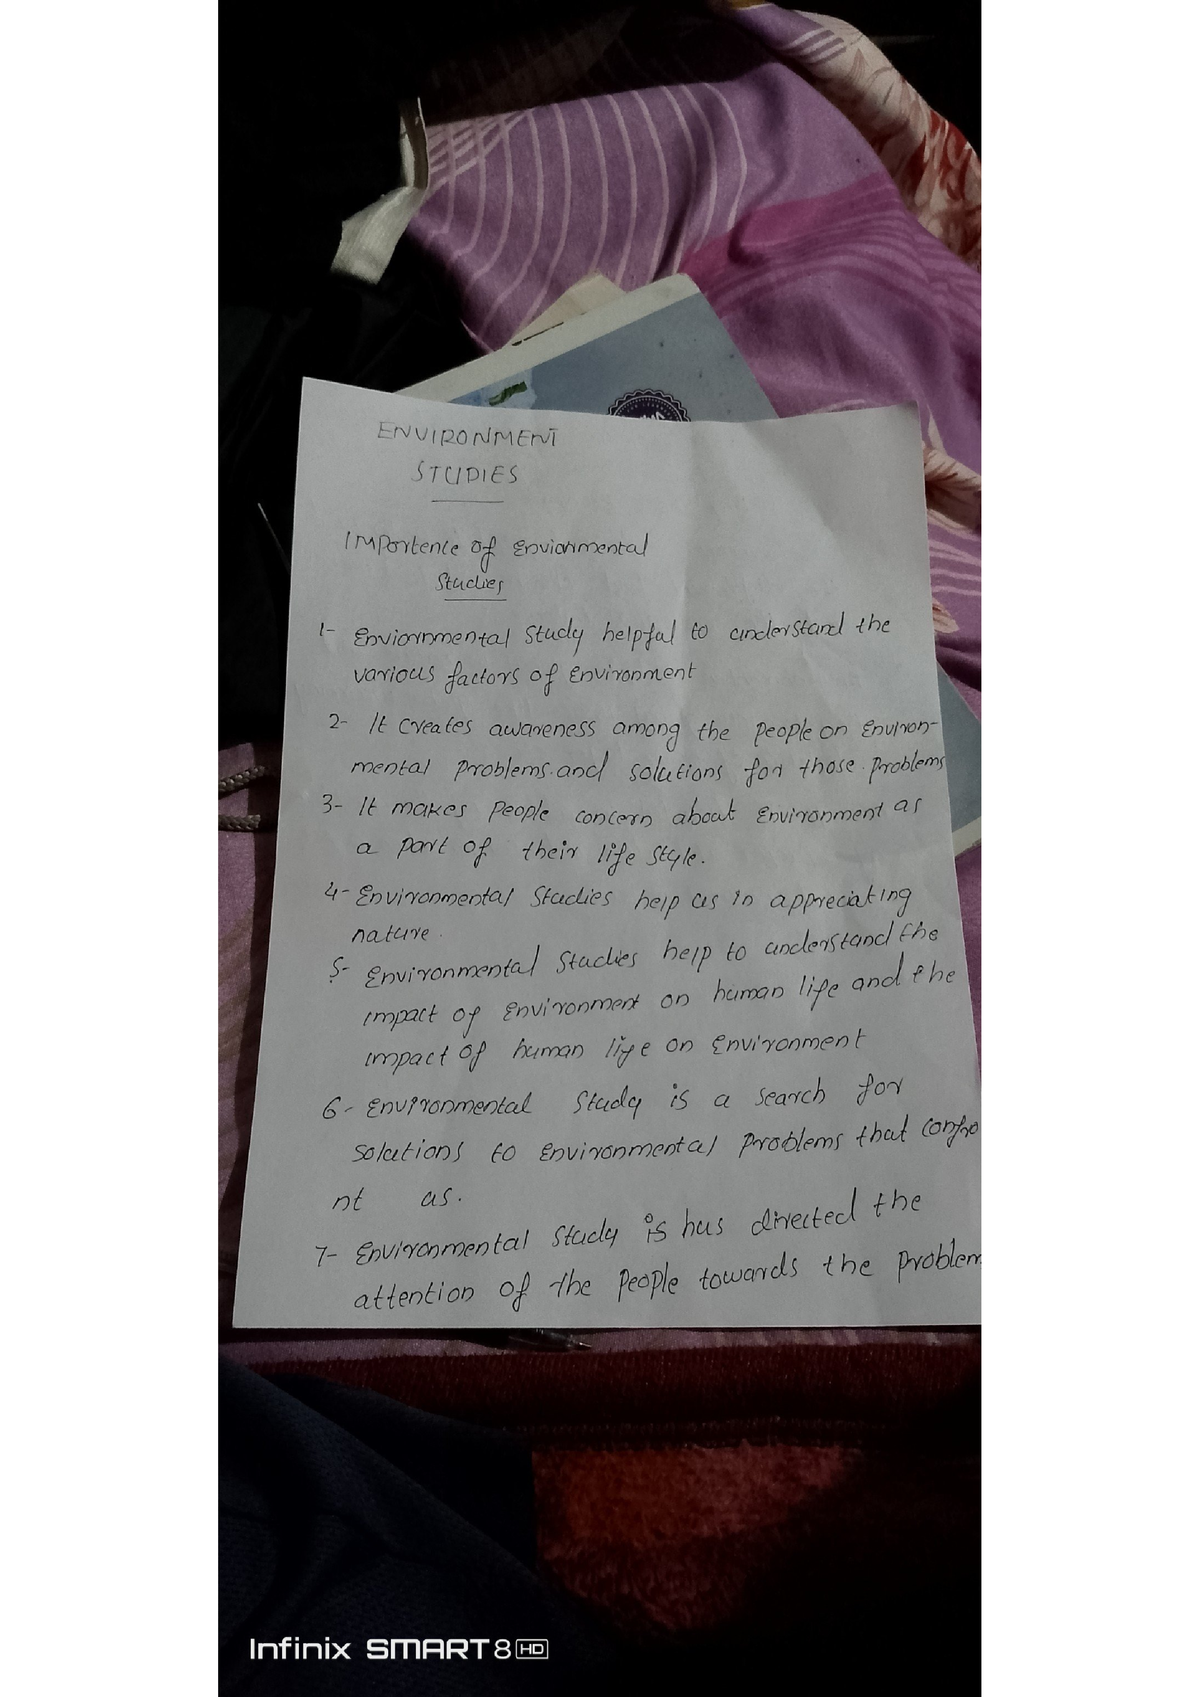 ENVIRONMENT
STUDIES
Importence of Enviornmental
Studies
1- Enviornmental Study helpful to understand the
various factors of Environment
2- It creates awareness among the people on Environ-
mental problems.and solutions for those problems
3- It makes people concern about Environment as
a part of their life style.
4- Environmental Studies help us in appreciating
nature.
5- Environmental Studies help to understand the
impact of Environment on human life and the
impact of human life on Environment
6- Environmental Study is a search for
solutions to Environmental problems that confro
nt us.
7- Environmental Study is has directed the
attention of the people towards the problem
Infinix SMART 8 HD